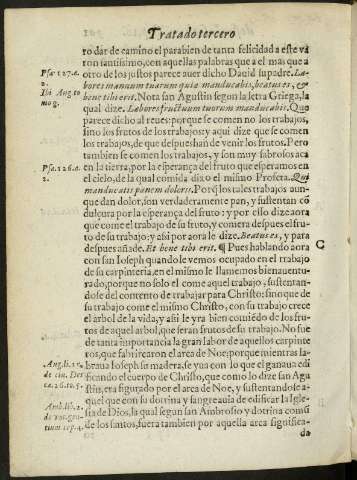 Tratado tercero
ro dar de camino el parabien de tanta felicidad a este va
ron santissimo, con aquellas palabras que a el mas que a
otro de los justos parece auer dicho Dauid su padre. La-
bores manuum tuarum quia manducabis, beatus es, &
bene tibi erit. Nota san Agustin segun la letra Griega, la
qual dize. Labores fructuum tuorum manducabis. Que
parece dicho al reues: porque se comen no los trabajos,
sino los frutos de los trabajos: y aqui dize que se comen
los trabajos, de que despues han de venir los frutos. Pero
tambien se comen los trabajos, y son muy sabrosos aca
en la tierra, por la esperança del fruto que esperamos en
el cielo, de la qual comida dixo el mismo Profeta. Qui
manducatis panem doloris. Porq̃ los tales trabajos aun-
que dan dolor, son verdaderamente pan, y sustentan cõ
dulçura por la esperança del fruto: y por esso dize aora
que come el trabajo de su fruto, y comera despues el fru-
to de su trabajo; y assi por aora le dize. Beatus es, y para
despues añade. Et bene tibi erit. ¶ Pues hablando aora
con san Ioseph quando le vemos ocupado en el trabajo
de su carpinteria, en el mismo le llamemos bienauentu-
rado, porque no solo el come aquel trabajo, sustentan-
dose del contento de trabajar para Christo: sino que de
su trabajo come el mismo Christo, con su trabajo crece
el arbol de la vida, y assi le yra bien comiẽdo de los fru-
tos de aquel arbol, que seran frutos de su trabajo. No fue
de tanta importancia la gran labor de aquellos carpinte
ros, que fabricaron el arca de Noe; porque mientras la-
braua Ioseph su madera, se yua con lo que el ganaua edi
ficando el cuerpo de Christo, que como lo dize san Agu
stin, era figurado por el arca de Noe, y sustentandose a-
quel que con su dotrina y sangre auia de edificar la Igle-
sia de Dios, la qual segun san Ambrosio y dotrina comũ
de los santos, fuera tambien por aquella arca significa-
da
Psa. 127. a.
2.
Ibi Aug. to
mo 9.
Psa. 126. a.
2.
C
Aug. li. 15.
de ciu. Dei
ca. 26. to. 5.
Amb. lib. 2.
de voc. gen
tium cap. 4.